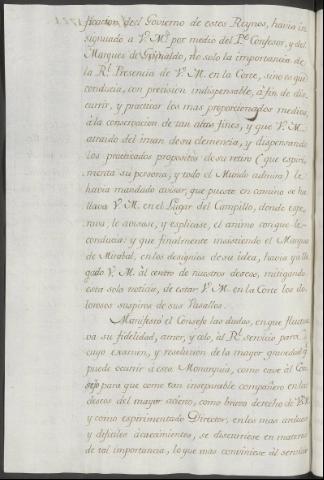 ficacion del Govierno de estos Reynos, havia in
sinuado a V.M. por medio del P.e Confesor, y del
Marques de Grimaldo, no solo la importancia de
la R.l Presencia de V.M. en la Corte, sino es que
conducia, con precision indispensable, a fin de dis
currir, y practicar los mas proporcionados medios
a la conservacion de tan altos fines, y que V.M.
atraido del iman de su clemencia, y dispensando
los practicados propositos de su retiro (que experi
menta su persona, y todo el Mundo admira) le
havia mandado avisar, que puesto en camino se ha
llava V.M. en el Lugar del Campillo, donde espe
rava, le avisase, y explicase, el animo con que le
conducia: y que finalmente insistiendo el Marques
de Mirabal, en los designios de su idea, havia ya lle
gado V.M. al centro de nuestros deseos, mitigando
esta sola noticia, de estar V.M. en la Corte los do
lorosos suspiros de sus Vasallos.
Manifestò el Consejo las dudas, en que fluctua
va su fidelidad, amor, y celo, al R.l servicio para
cuyo examen, y resolucion de la mayor gravedad q
puede ocurrir à esta Monarquia, como cave al Con
sejo para que como tan inseparable compañero en los
deseos del mayor acierto, como brazo derecho de V.M.
y como experimentado Director, en los mas arduos
y dificiles acaecimientos, se discurriese en materia
de tal importancia, lo que mas conviniese al servicio